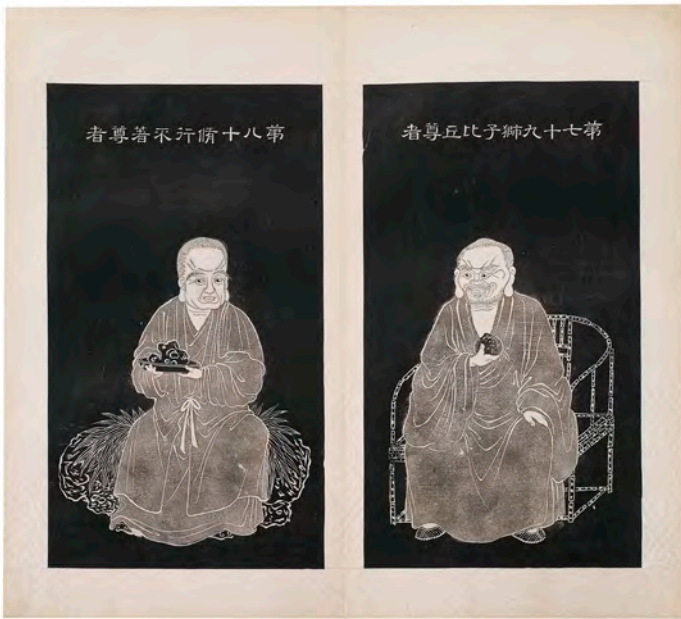 第七十九師子比丘尊者
第八十脩行不著尊者